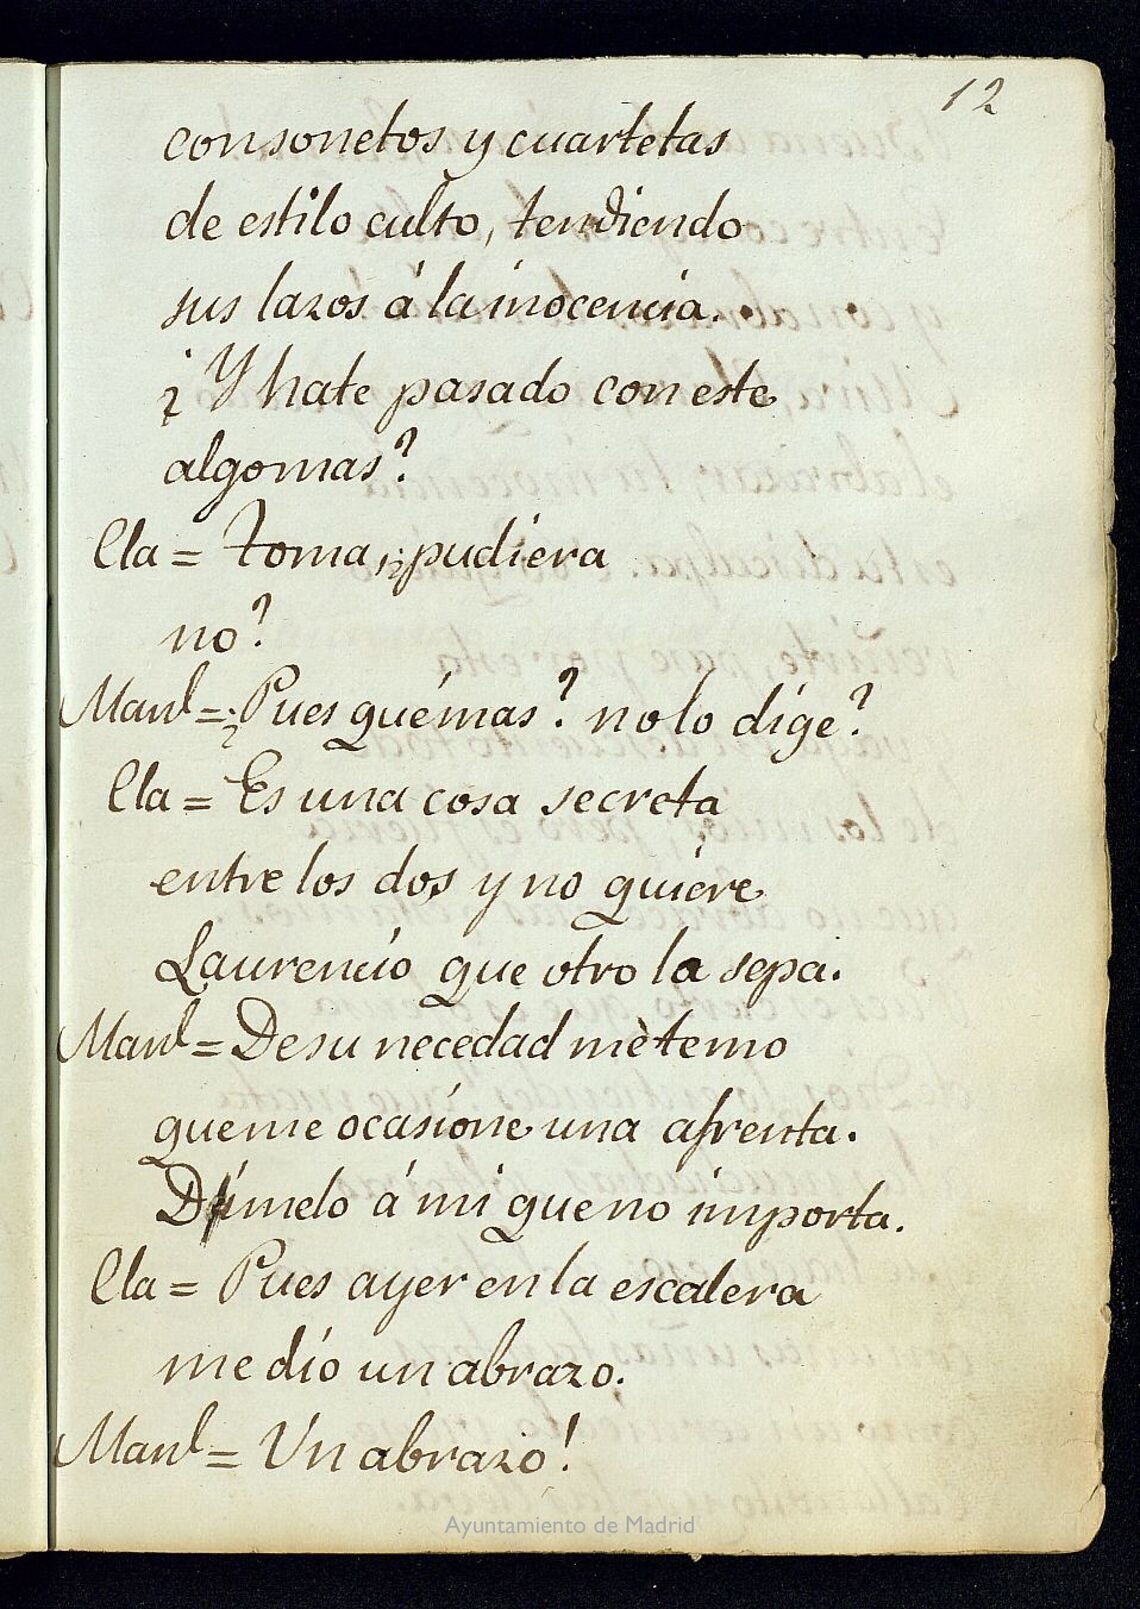 12
con sonetos y cuartetas
de estilo culto, tendiendo
sus lazos á la inocencia.
¿Y hate pasado con este
algo mas?
Cla = Toma, ¿pudiera
no?
Manl = ¿Pues qué mas? no lo dige?
Cla = Es una cosa secreta
entre los dos y no quiere
Laurencio que otro la sepa.
Manl = De su necedad me temo
que me ocasione una afrenta.
Dímelo á mi que no importa.
Cla = Pues ayer en la escalera
me dio un abrazo.
Manl = Un abrazo!
Ayuntamiento de Madrid